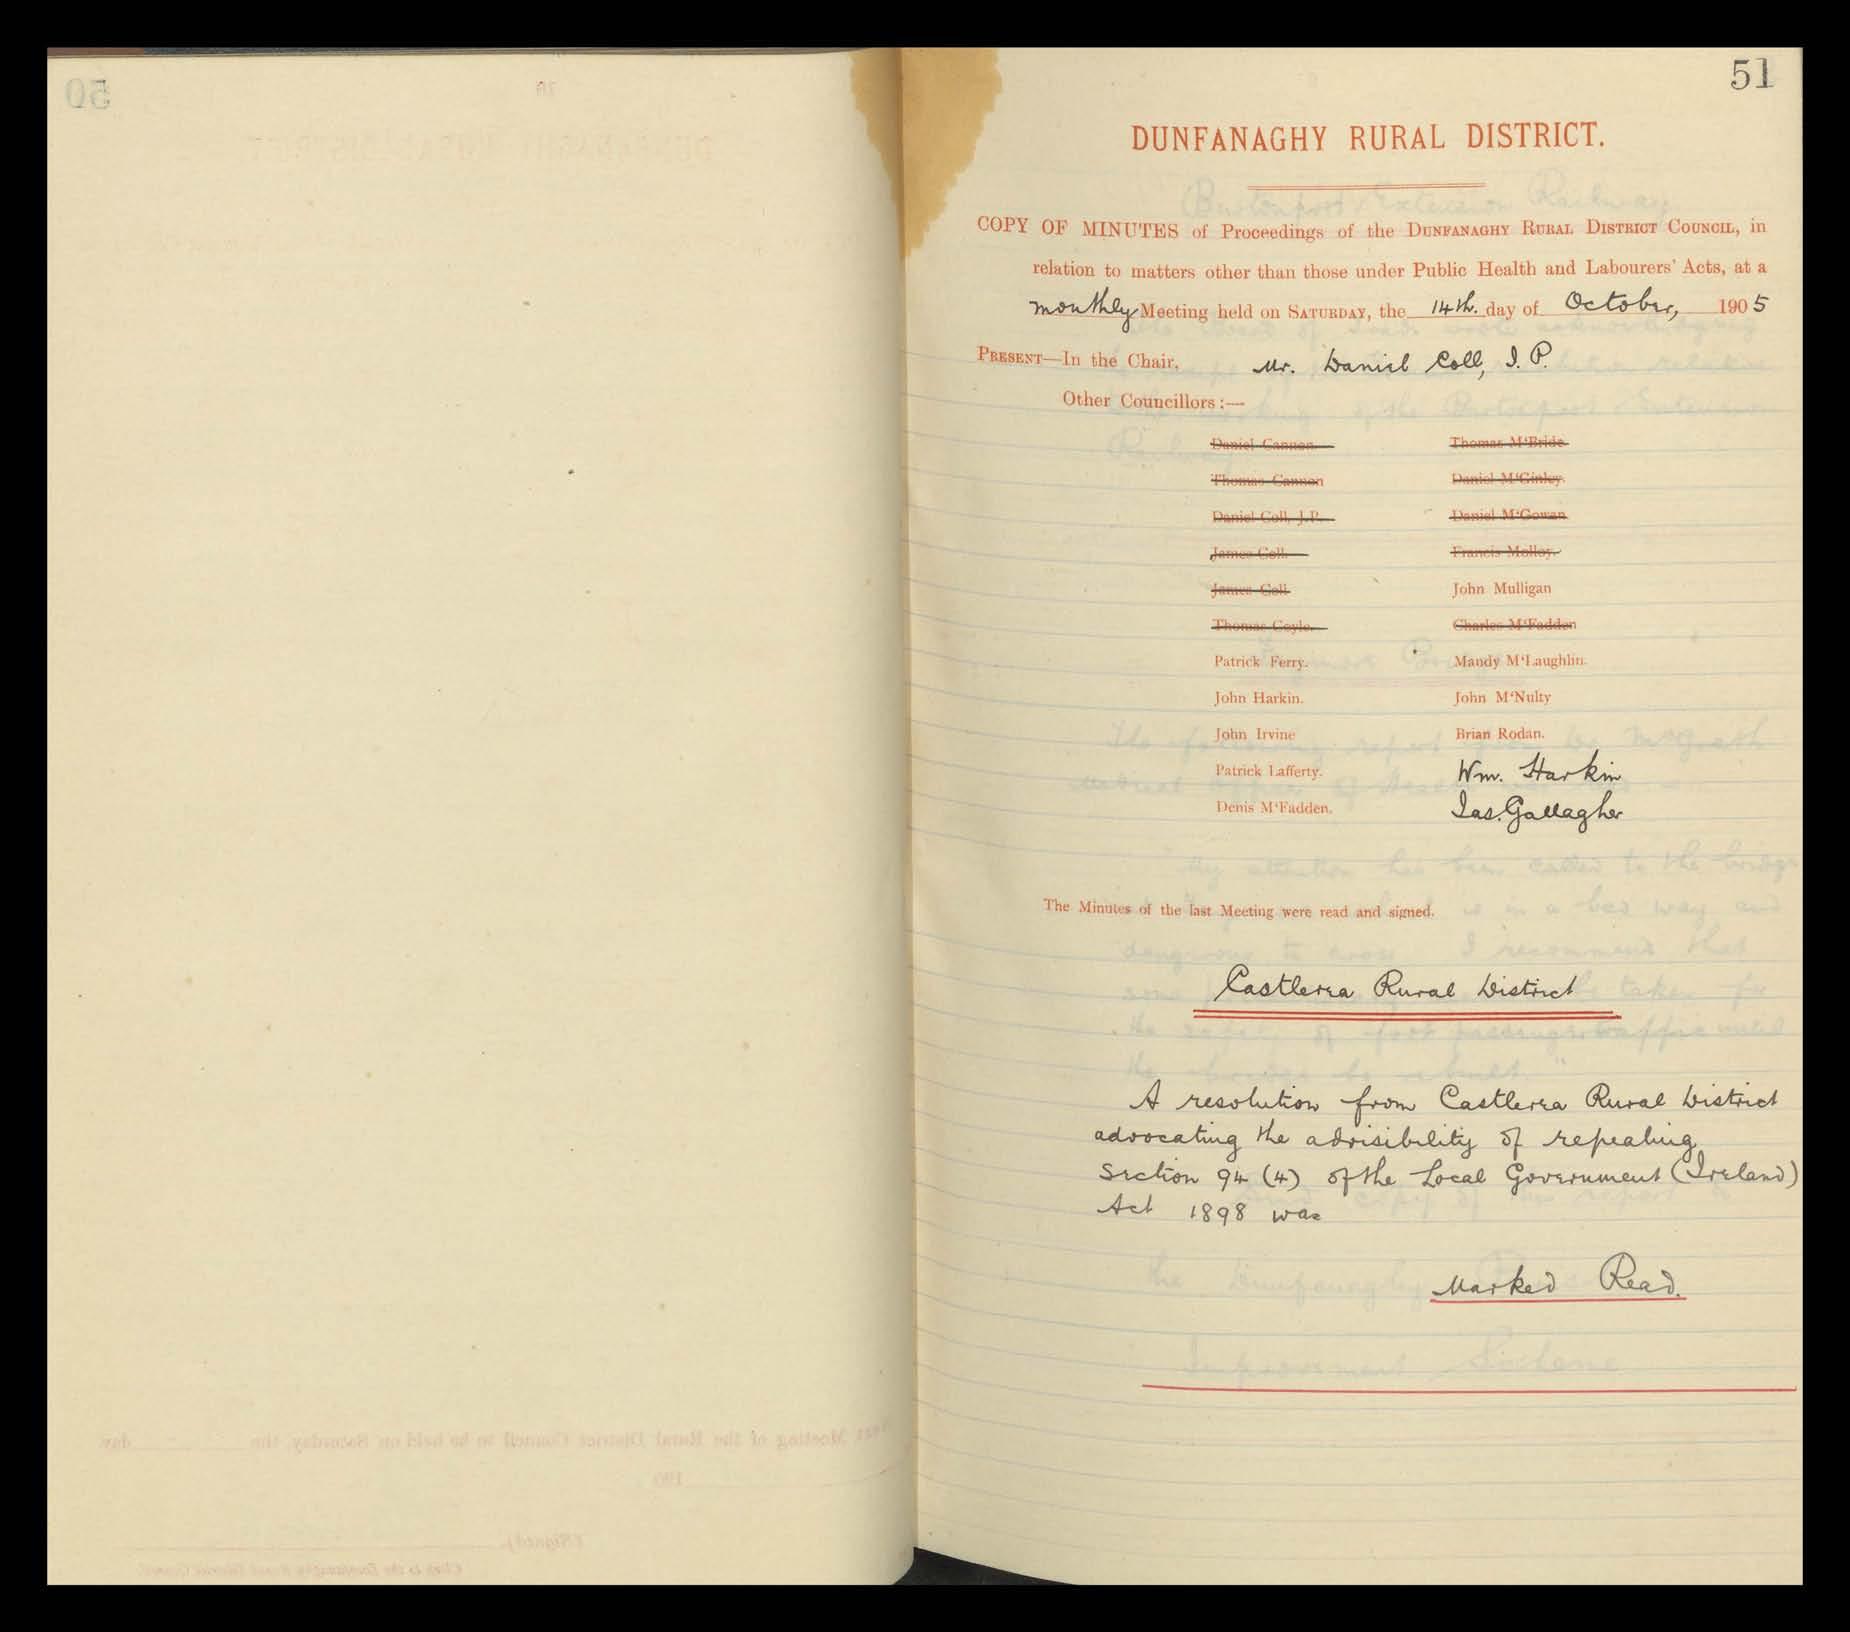 51
DUNFANAGHY RURAL DISTRICT.
COPY OF MINUTES of Proceedings of the DUNFANAGHY RURAL DISTRICT COUNCIL, in
relation to matters other than those under Public Health and Labourers' Acts, at a
monthly Meeting held on SATURDAY, the 14th. day of October, 1905
PRESENT—In the Chair, Mr. Daniel Coll, J.P.
Other Councillors:—
Daniel Cannon. Thomas M'Bride.
Thomas Cannon Daniel M'Ginley.
Daniel Coll, J.P. Daniel M'Gowan
James Coll. Francis Molloy.
James Coll John Mulligan
Thomas Coyle. Charles M'Fadden
Patrick Ferry. Mandy M'Laughlin.
John Harkin. John M'Nulty
John Irvine Brian Rodan.
Patrick Lafferty. Wm. Harkin
Denis M'Fadden. Jas. Gallagher
The Minutes of the last Meeting were read and signed.
Castlerea Rural District
A resolution from Castlerea Rural District
advocating the advisibility of repealing
Section 94 (4) of the Local Government (Ireland)
Act 1898 was
Marked Read.